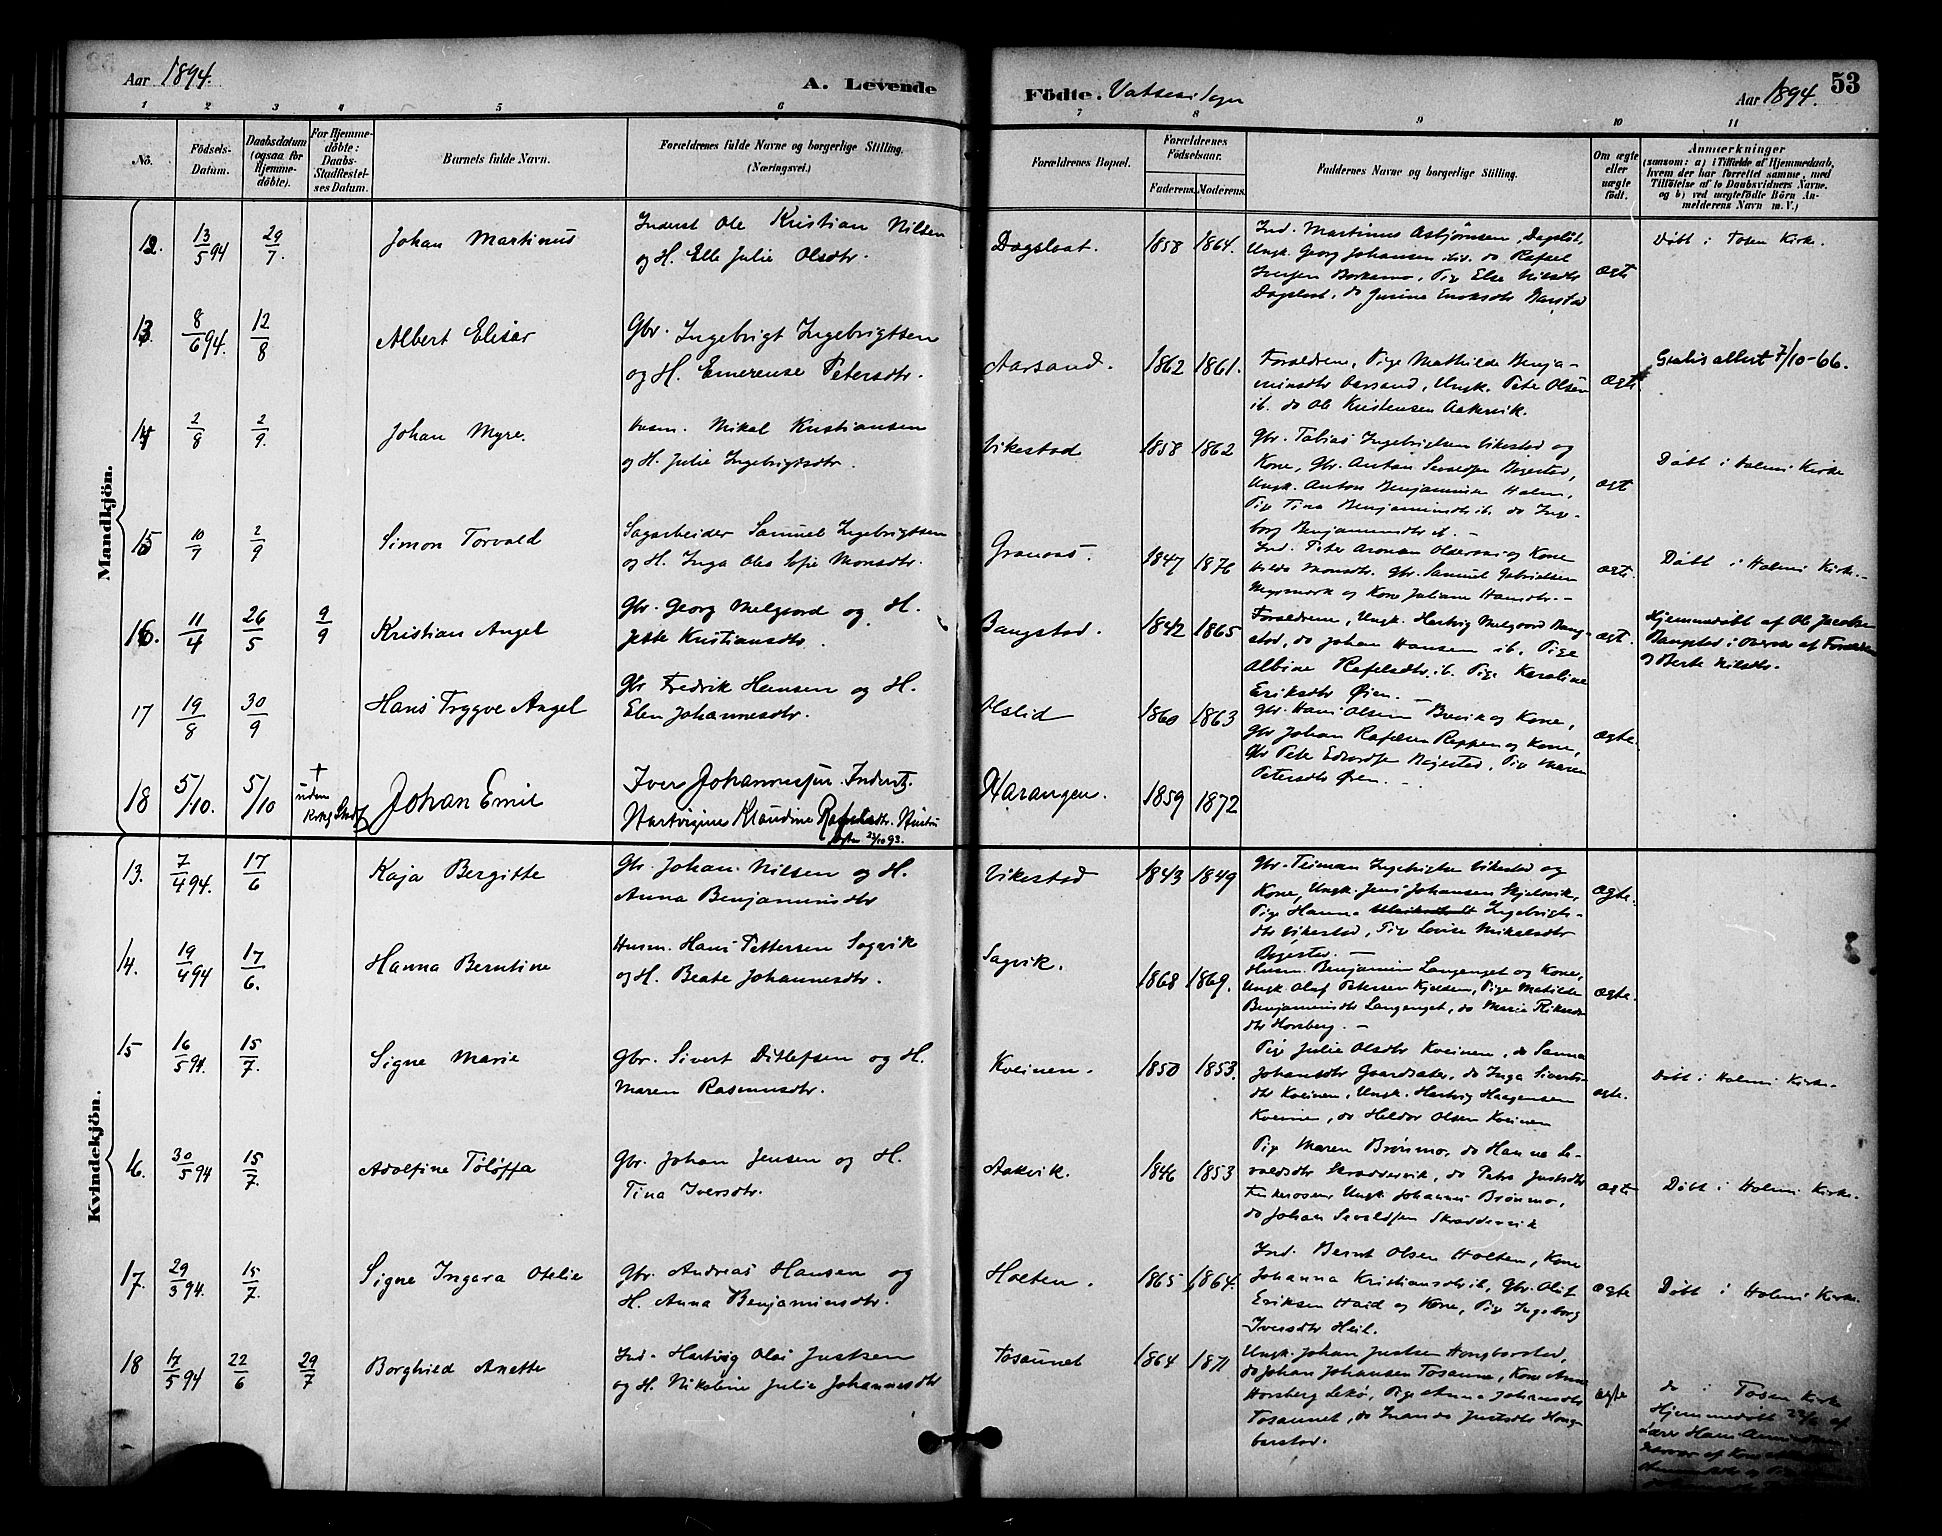 Aar 1894.
A. Levende
Födte.
Aar 1894.
53
1 2 3 4 5 6 7 8 9 10 11
No.
Födsels-Datum.
Daabsdatum (ogsaa for Hjemmedöbte).
For Hjemmedöbte: Daabs-Stadfæstelses Datum.
Barnets fulde Navn.
Forældrenes fulde Navne og borgerlige Stilling.
(Næringsvei.)
Forældrenes Bopæl.
Forældrenes Födselsaar.
Faderens. Moderens.
Faddernes Navne og borgerlige Stilling.
Om ægte eller uægte födt.
Anmærkninger
(saasom: a) i Tilfælde af Hjemmedaab,
hvem der har forrettet samme, med
Tilföielse af to Daabsvidners Navne.
og b) ved uægtefödte Börn An-
melderens Navn m. V.)
Mandkjön.
12. 13/5 94 29/7. Johan Martinus
Inderst Ole Kristian Nilsen
og H. Elle Julie Olsdtr.
Dagslaat. 1858 1864.
Ind. Martinus Asbjørnsen, Dagslot,
Ungk. Georg Johansen ib. do Rafael
Iversen Borkamo, Pige Else Nilsdtr
Dagslot, do
ægte
Døbt i Tosen Kirke.
13 8/6 94. 12/8 Albert Elisar
Gbr. Ingebrigt Ingebrigtsen
og H. Emerense Petersdtr.
Aarsand. 1862 1861.
Forældrene, Pige Mathilde Benja-
minsdtr Aarsand, Ungk. Peter Olsen
ib. do Ole Kristensen Aakvik.
ægte
7/10-66.
14 2/8 2/9. Johan Myre.
Husm. Mikal Kristiansen
og H. Julie Ingebrigtsdtr.
Vikestad 1858 1862
Gbr. Tobias Ingebrigtsen Vikestad og
Kone, Gbr. Anton
Ungk. Anton Benjaminsen Holm,
Pige Tina Benjaminsdtr ib. do Inge-
borg Benjaminsdtr ib. -
ægt
Døbt i Holms Kirke
15 10/7 2/9 Simon Torvald
Sagarbeider Samuel Ingebrigtsen
og H. Inga Monsdtr.
Granaas. 1847 1876
Ind. Peter Aronsen og Kone
Monsdtr. Gbr. Samuel Gabrielsen
og Kone Juliane Hansdtr. -
ægte.
Døbt i Holms Kirke. -
16. 11/4 26/5 9/9 Kristian Angel
Gbr. Georg Melgaard og H.
Jette Kristiansdtr.
Bangstad. 1842 1865
Forældrene, Ungk. Hartvig Melgaard Bang-
stad, do Johan Hansen ib. Pige
Albine Rafelsdtr ib. Pige Karoline
Eriksdtr Øien. -
ægt.
Hjemmedøbt af Ole Jacobsen
Bangstad i Overvær af Forældrene
og Berte Nilsdtr.
17 19/8 30/9 Hans Tryggve Angel
Gbr Fredrik Hansen og H.
Elen Johannesdtr.
Uslid 1860 1863
Gbr. Hans Olsen Brevik og Kone,
Gbr Johan Rafelsen Reppen og Kone,
Gbr Peter Edvardsen Pige Maren
Petersdtr Øien. -
ægte.
18 5/10. 5/10 + uden Johan Emil
Iver Johannessen. Inderst.
Hartvigine Klaudine Rafelsdtr. Hustru
23/10 93.
Harangen. 1859 1872
Kvindekjön.
13. 7/4 94. 17/6 Kaja Bergitte
Gbr. Johan Nilsen og H.
Anna Benjaminsdtr
Vikestad 1843 1849
Gbr. Teiman Ingebrigtsen Vikestad og
Kone, Ungk. Jens Johansen Skjelsvik,
Pige Hanna Ingebrigts-
dtr Vikestad, Pige Lovise Mikalsdtr
ægte.
14. 19/4 94 17/6. Hanna Berntine
Husm. Hans Pettersen Sagvik
og H. Beate Johannesdtr.
Sagvik. 1868 1869.
Husm. Benjamin Langenget og Kone,
Ungk. Olaf Petersen Kjelsen, Pige Matilde
Benjaminsdtr Langenget, do Marie
dtr Horsberg. -
ægte.
15 16/5 94. 15/7. Signe Marie
Gbr. Sivert Ditlefsen og H.
Maren Rasmusdtr.
Kveinen. 1850 1853.
Pige Julie Olsdtr Kveinen, do Sanna
Johansdtr do Inga Siverts-
dtr Kveinen, Ungk. Hartvig Haagensen
Kveinen, do Heldor Olsen Kveinen
ægte.
Døbt i Holms Kirke.
16. 30/5 94 15/7. Adolfine Töløffa
Gbr. Johan Jensen og H.
Tina Iversdtr.
Aakvik. 1846 1853
Pige Maren Brønmo, do Hanna Si-
valdsdtr Skraddervik, do Petra Justsdtr
Ungk. Johannes Brønmo,
do Johan Sivaldsen Skraddervik
ægte
Døbt i Holms Kirke.
17. 29/3 94. 15/7. Signe Ingara Otelie
Gbr. Andreas Hansen og
H. Anna Benjaminsdtr.
Holten. 1865 1864.
Ind. Bernt Olsen Holten, Kone
Johanna Kristiansdtr ib, Gbr. Oluf
Eriksen Haid og Kone, Pige Ingeborg
Iversdtr Heil.
ægte
Døbt i Holms Kirke.
18 17/5 94 22/6 29/7 Borghild Anette
Ind. Hartvig Olai Justsen
og H. Nikoline Julie Johannesdtr
Tosaunet 1864 1871
Ungk. Johan Justsen Hongbarstad,
do Johan Johansen Tosaune, Kone Anna
Horsberg Lekø, Pige Anna Johansdtr
Tosaunet, do Justsdtr Hong-
barstad.
ægte
do i Tosen Kirke
Hjemmedøbt 22/6 af
Lærer Hans